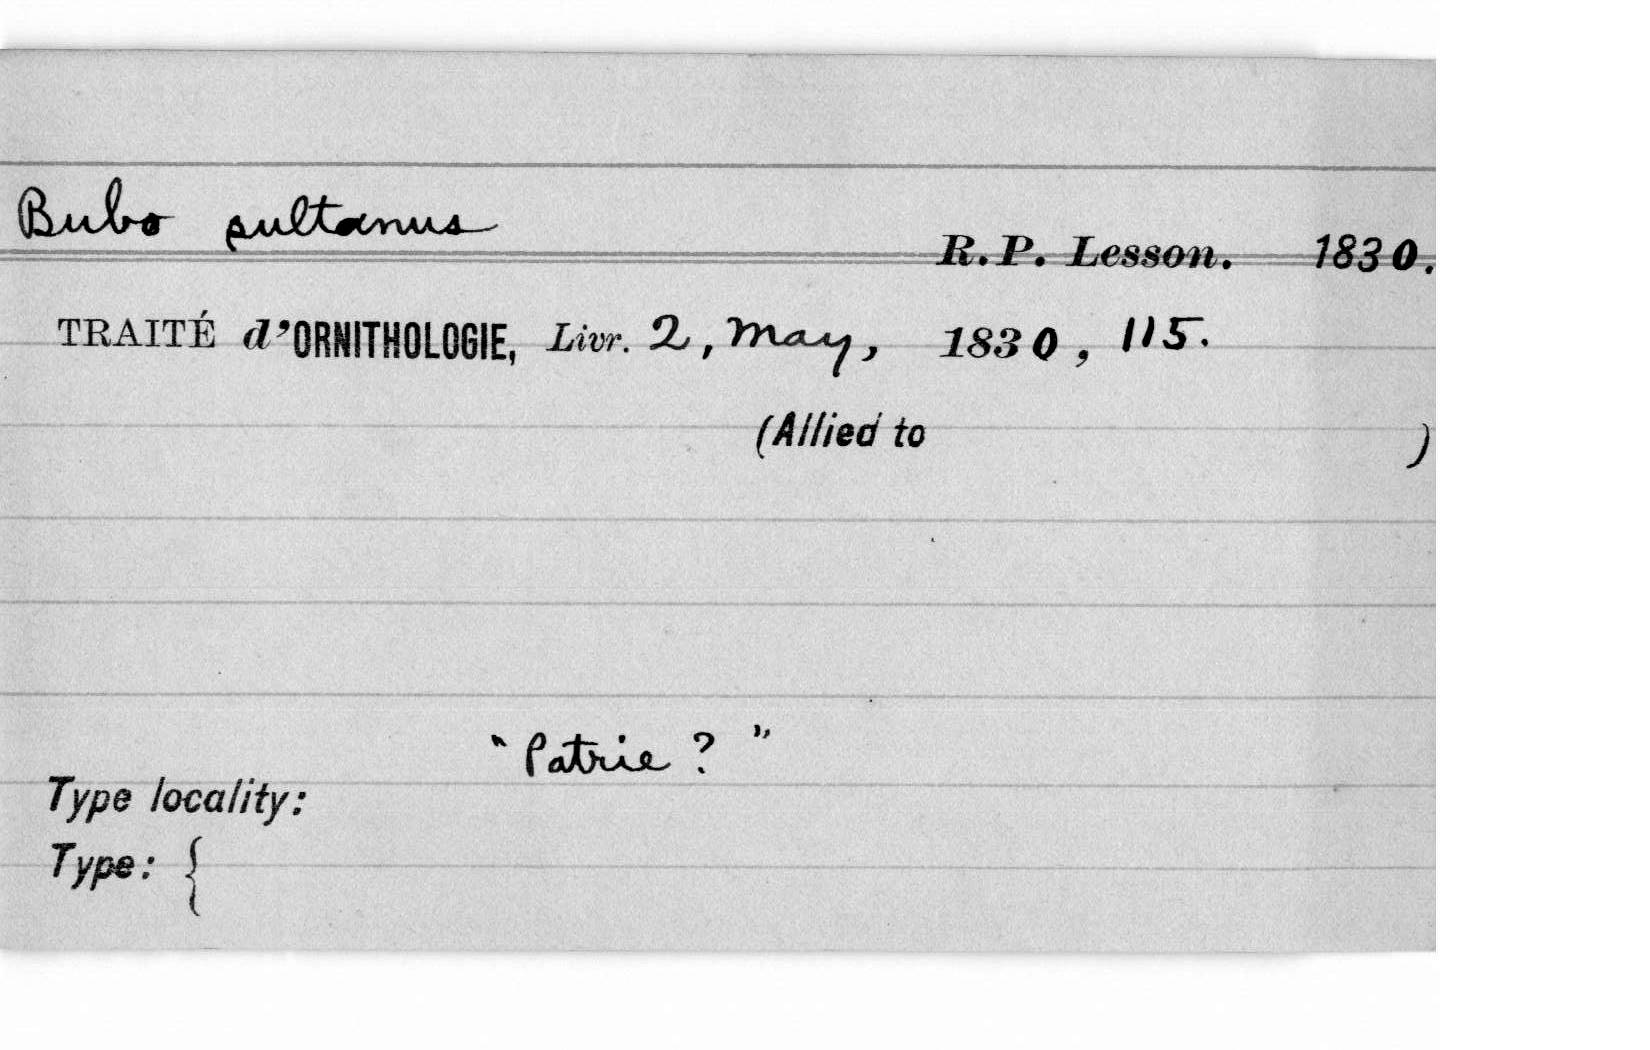 Bubo sultanus
R.P. Lesson. 1830.
TRAITÉ d'ORNITHOLOGIE, Livr. 2, May, 1830, 115.
(Allied to )
"Patrie ? "
Type locality:
Type: {